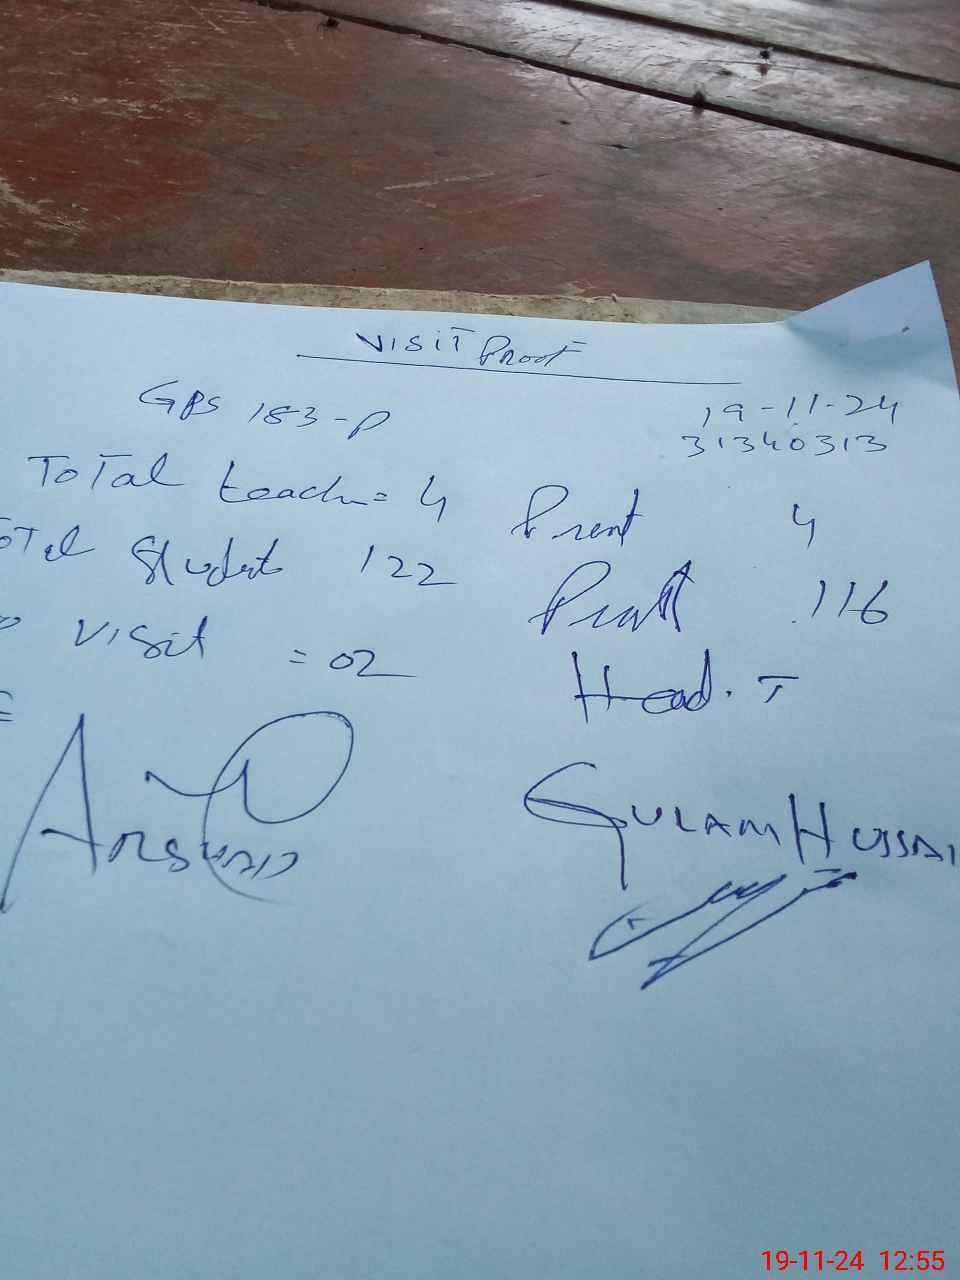 VISIT Proof
GPS 183-P 19-11-24
31340313
Total teach = 4 Prent 4
Total Students 122 116
Visit = 02 Head. T
Arshad GULAM HUSSAI
19-11-24 12:55